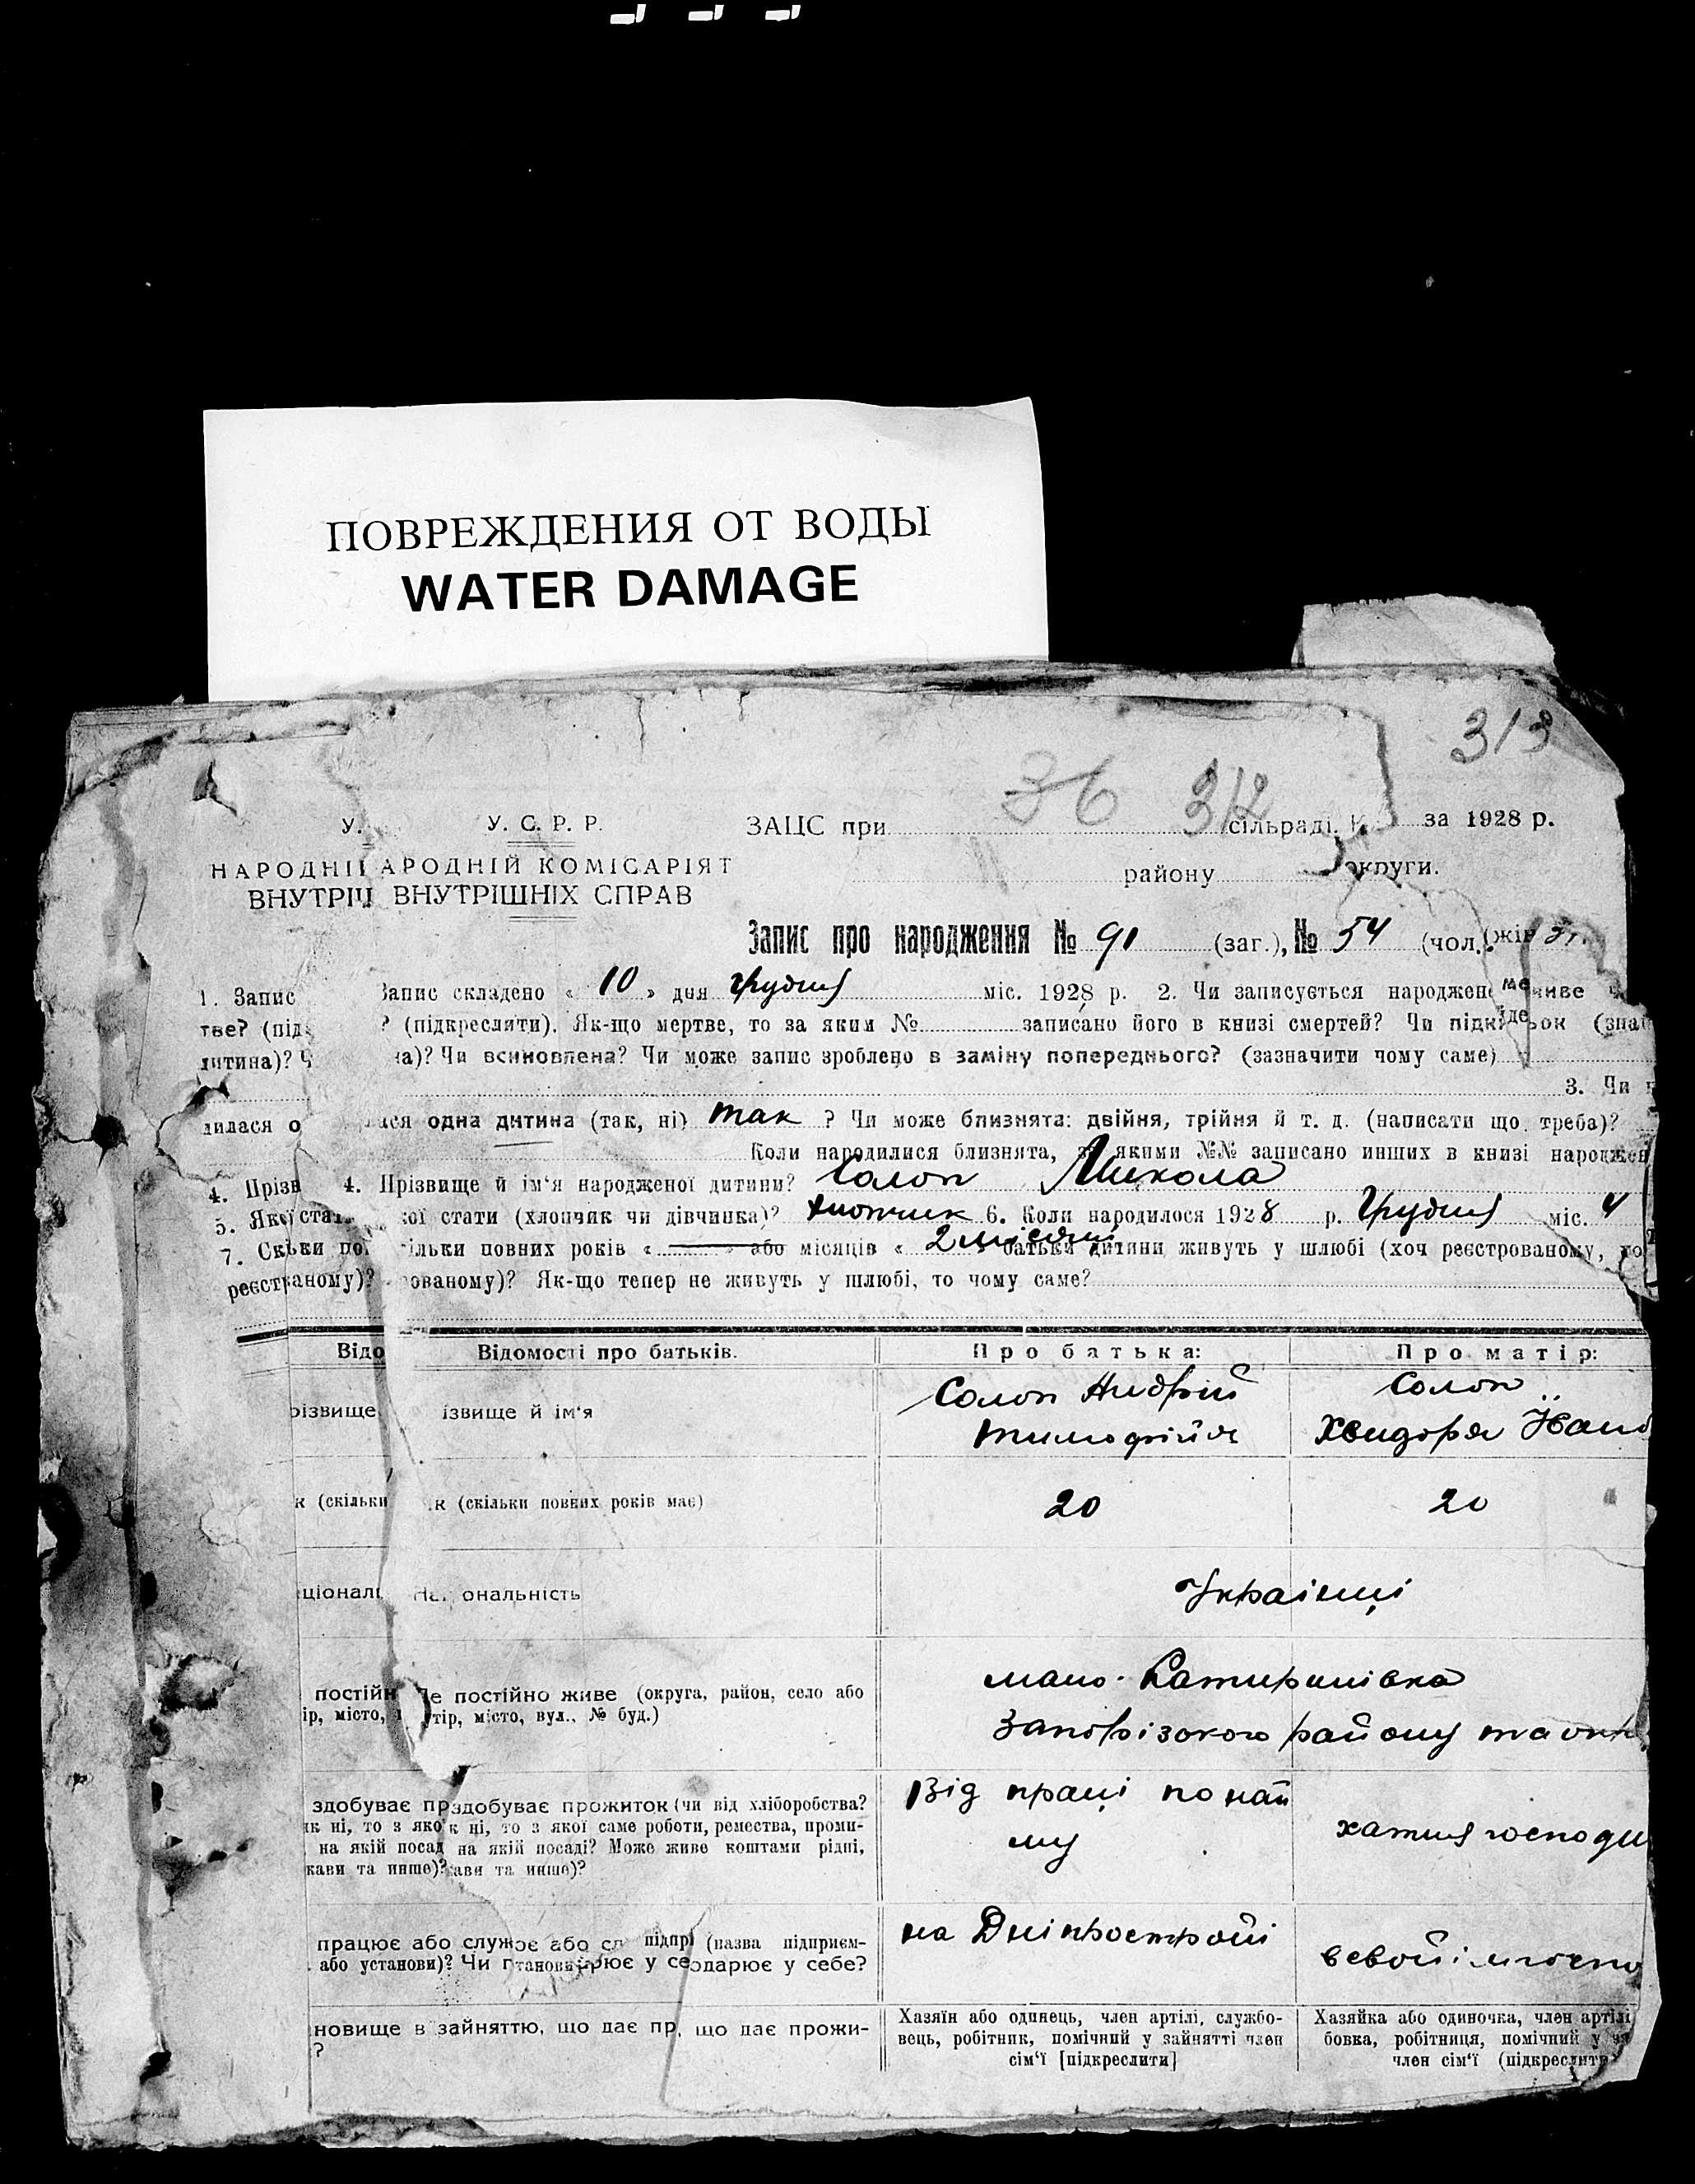 ПОВРЕЖДЕНИЯ ОТ ВОДЫ
WATER DAMAGE
313
36 312
У. У. С. Р. Р. ЗАЦС при сільраді. за 1928 р.
НАРОДНІ АРОДНІЙ КОМІСАРІЯТ району округи.
ВНУТРІШ ВНУТРІШНІХ СПРАВ
Запис про народження № 91 (заг.), № 54 (чол.
1. Запис Запис складено « 10 » дня грудня міс. 1928 р. 2. Чи записується народжене живе
тве? (під ? (підкреслити). Як-що мертве, то за яким № записано його в книзі смертей? Чи підки
дитина)? Ч на)? Чи всиновлена? Чи може запис зроблено в заміну попереднього? (зазначити чому саме)
3. Чи
дилася о лася одна дитина (так, ні) так ? Чи може близнята: двійня, трійня й т. д. (написати що треба)?
Коли народилися близнята, за якими №№ записано инших в книзі народжен
4. Прізв 4. Прізвище й ім'я народженої дитини? Солоп Микола
5. Якої стат кої стати (хлопчик чи дівчинка)? хлопчик 6. Коли народилося 1928 р. Грудня міс. 4
7. Скільки по ільки повних років « » або місяців « 2 місяці батьки дитини живуть у шлюбі (хоч реєстрованому,
реєстраному)? рованому)? Як-що тепер не живуть у шлюбі, то чому саме?
Відо Відомості про батьків. Про батька: Про матір:
Солоп Андрій Солоп
різвище ізвище й ім'я
Тимофійів Хвидора Іванів
к (скільки к (скільки повних років має) 20 20
ціонал На ональність Українці
мало-Катиринівка
постійн Де постійно живе (округа, район, село або
ір, місто, тір, місто, вул., № буд.)
Запорізького району та окр
Від праці по най
му
здобуває пр здобуває прожиток (чи від хліборобства?
як ні, то з яко к ні, то з якої саме роботи, ремества, проми- хатня господи
на якій посад на якій посаді? Може живе коштами рідні,
кави та инше)? ави та инше)?
на Дніпрострої
працює або служ ює або сл підпр (назва підприєм-
або установи)? Чи г танови рює у се одарює у себе?
новище в зайняттю, що дає пр що дає прожи-
?
Хазяїн або одинець, член артілі, службо- Хазяйка або одиночка, член артілі
вець, робітник, помічний у зайнятті член бовка, робітниця, помічний у за
сім'ї [підкреслити] член сім'ї (підкреслити)